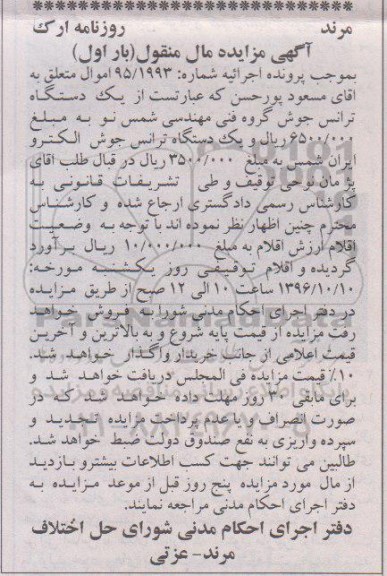 مرند روزنامه ارک
آگهی مزایده مال منقول(بار اول)
بموجب پرونده اجرائیه شماره: ۹۵/۱۹۹۳ اموال متعلق به
اقای مسعود پورحسن که عبارتست از یک دستگاه
ترانس جوش گروه فنی مهندسی شمس نو به مبلغ
۶۵۰۰/۰۰۰ ریال و یک دستگاه ترانس جوش الکترو
ایران شمس به مبلغ ۳۵۰۰/۰۰۰ ریال در قبال طلب اقای
پژمان نوحی توقیف و طی تشریفات قانونی به
کارشناس رسمی دادگستری ارجاع شده و کارشناس
محترم چنین اظهار نظر نموده اند با توجه به وضعیت
اقلام ارزش اقلام به مبلغ ۱۰/۰۰۰/۰۰۰ ریال برآورد
گردیده و اقلام توقیفی روز یکشنبه مورخه:
۱۳۹۶/۱۰/۱۰ ساعت ۱۰ الی ۱۲ صبح از طریق مزایده
در دفتر اجرای احکام مدنی شورا به فروش خواهد
رفت مزایده از قیمت پایه شروع و به بالاترین و آخرین
قیمت اعلامی از جانب خریدار واگذار خواهد شد.
۱۰٪ قیمت مزایده فی المجلس دریافت خواهد شد و
برای مابقی ۳۰ روز مهلت داده خواهد شد که در
صورت انصراف و یا عدم پرداخت مزایده تجدید و
سپرده واریزی به نفع صندوق دولت ضبط خواهد شد.
طالبین می توانند جهت کسب اطلاعات بیشتر و بازدید
از مال مورد مزایده پنج روز قبل از موعد مزایده به
دفتر اجرای احکام مدنی مراجعه نمایند.
دفتر اجرای احکام مدنی شورای حل اختلاف
مرند- عزتی